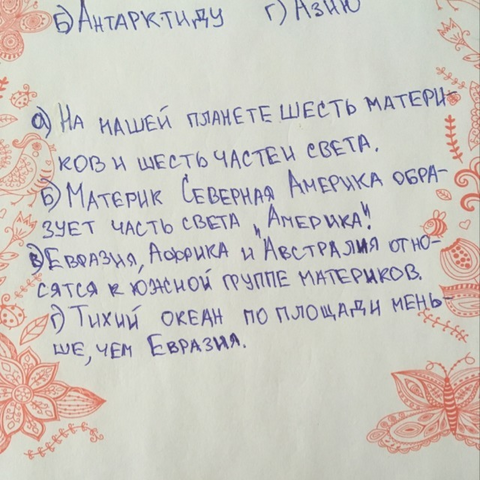 б) Антарктиду г) Азию
а) На нашей планете шесть матери-
ков и шесть частей света.
б) Материк Северная Америка обра-
зует часть света "Америка".
в) Евразия, Африка и Австралия отно-
сятся к южной группе материков.
г) Тихий океан по площади мень-
ше, чем Евразия.